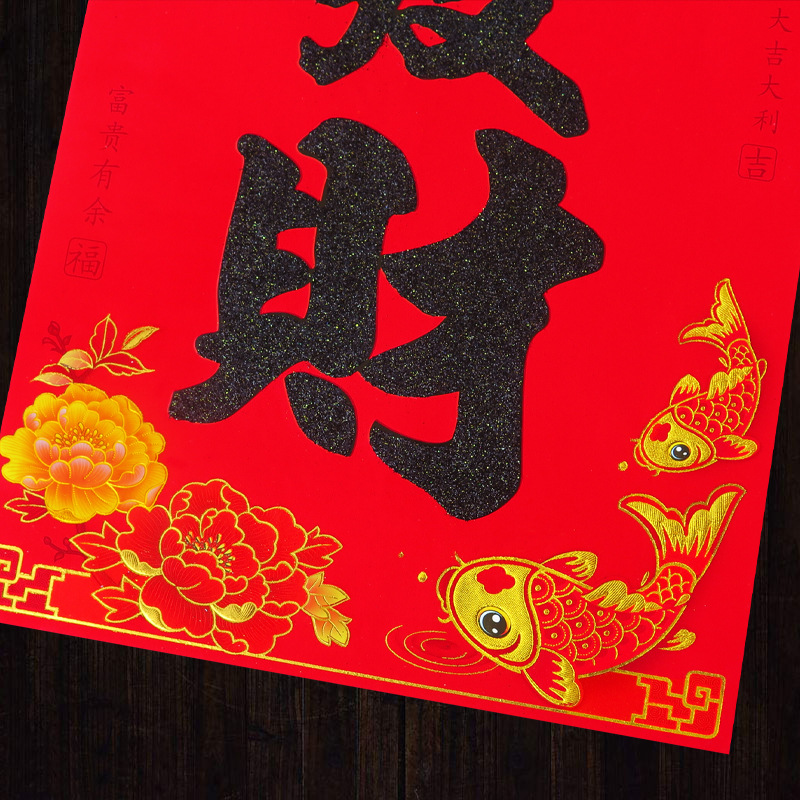 大吉大利
吉
財
富贵有余
福